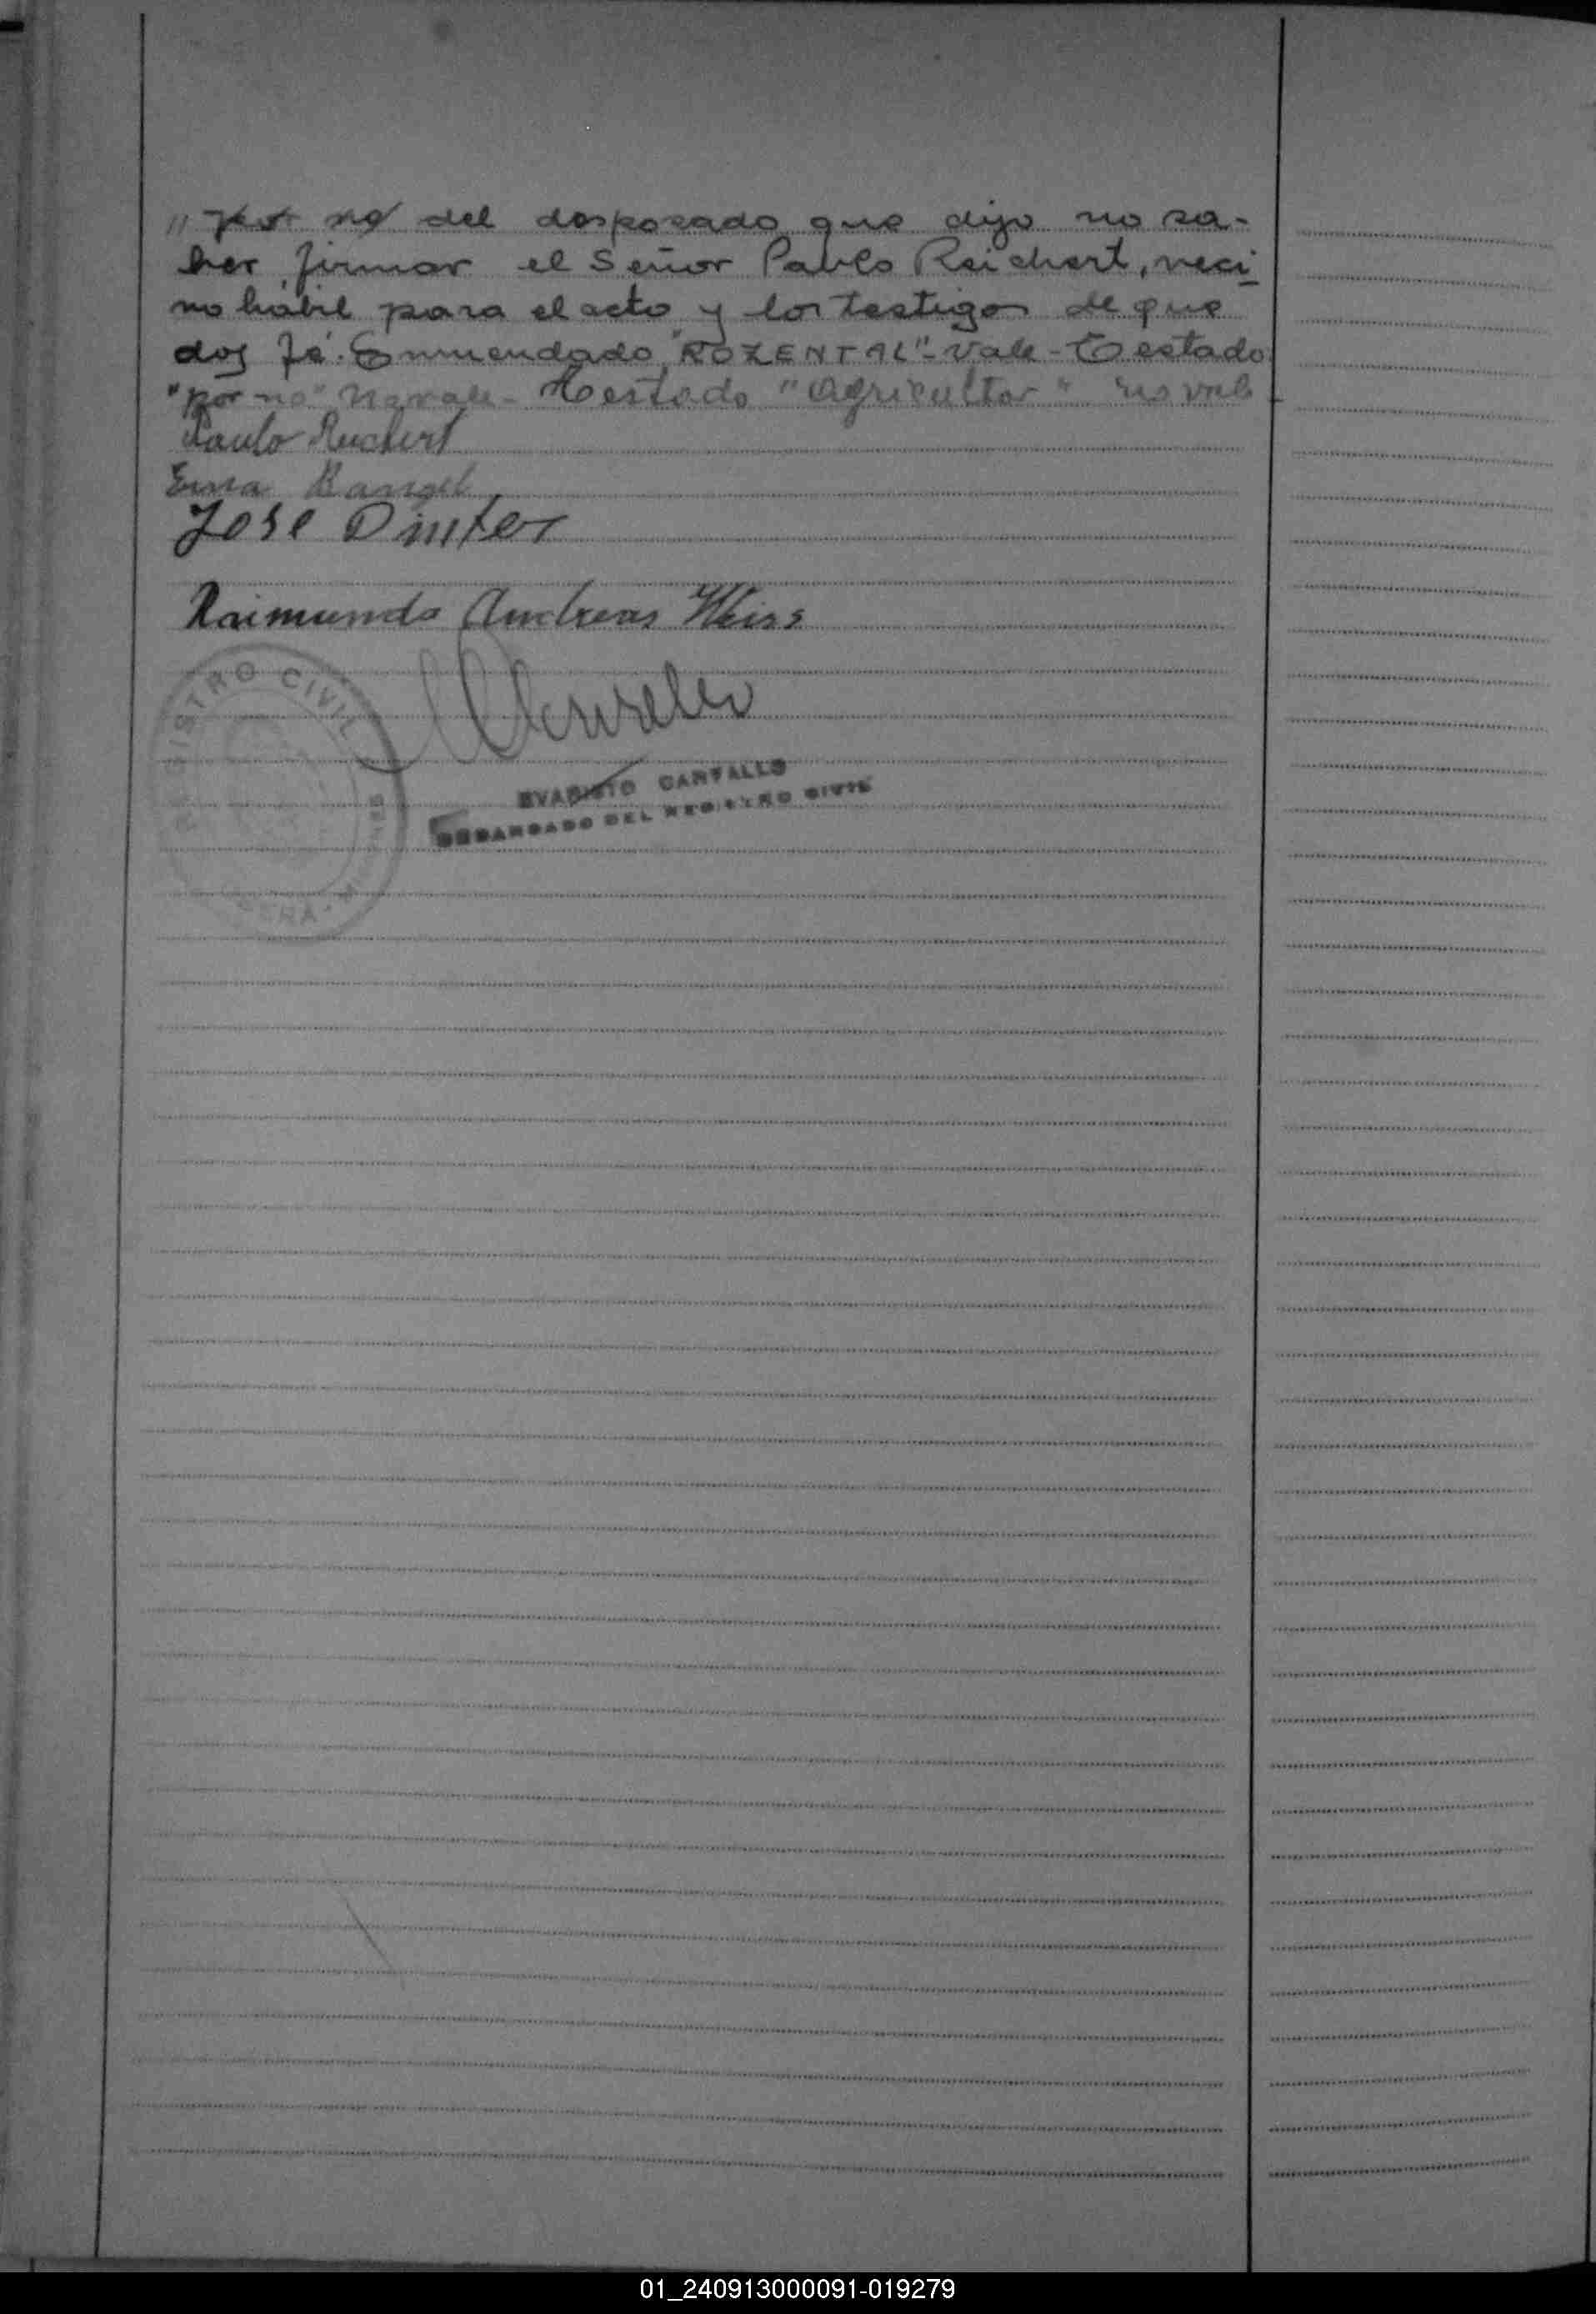 " por no del desposado que dijo no sa-
ber firmar el Señor Pablo Reichert, veci
no hábil para el acto y los testigos de que
doy fé. Enmendado "ROZENTAL"- Vale - Testado
"por no" No vale - Testado "agricultor" no vale
Paulo Ruchert
Erna
Jose Dinter
Raimundo Andreas Weiss
REGISTRO CIVIL
EVARISTO CARVALLO
ENCARGADO DEL REGISTRO CIVIL
01_240913000091-019279